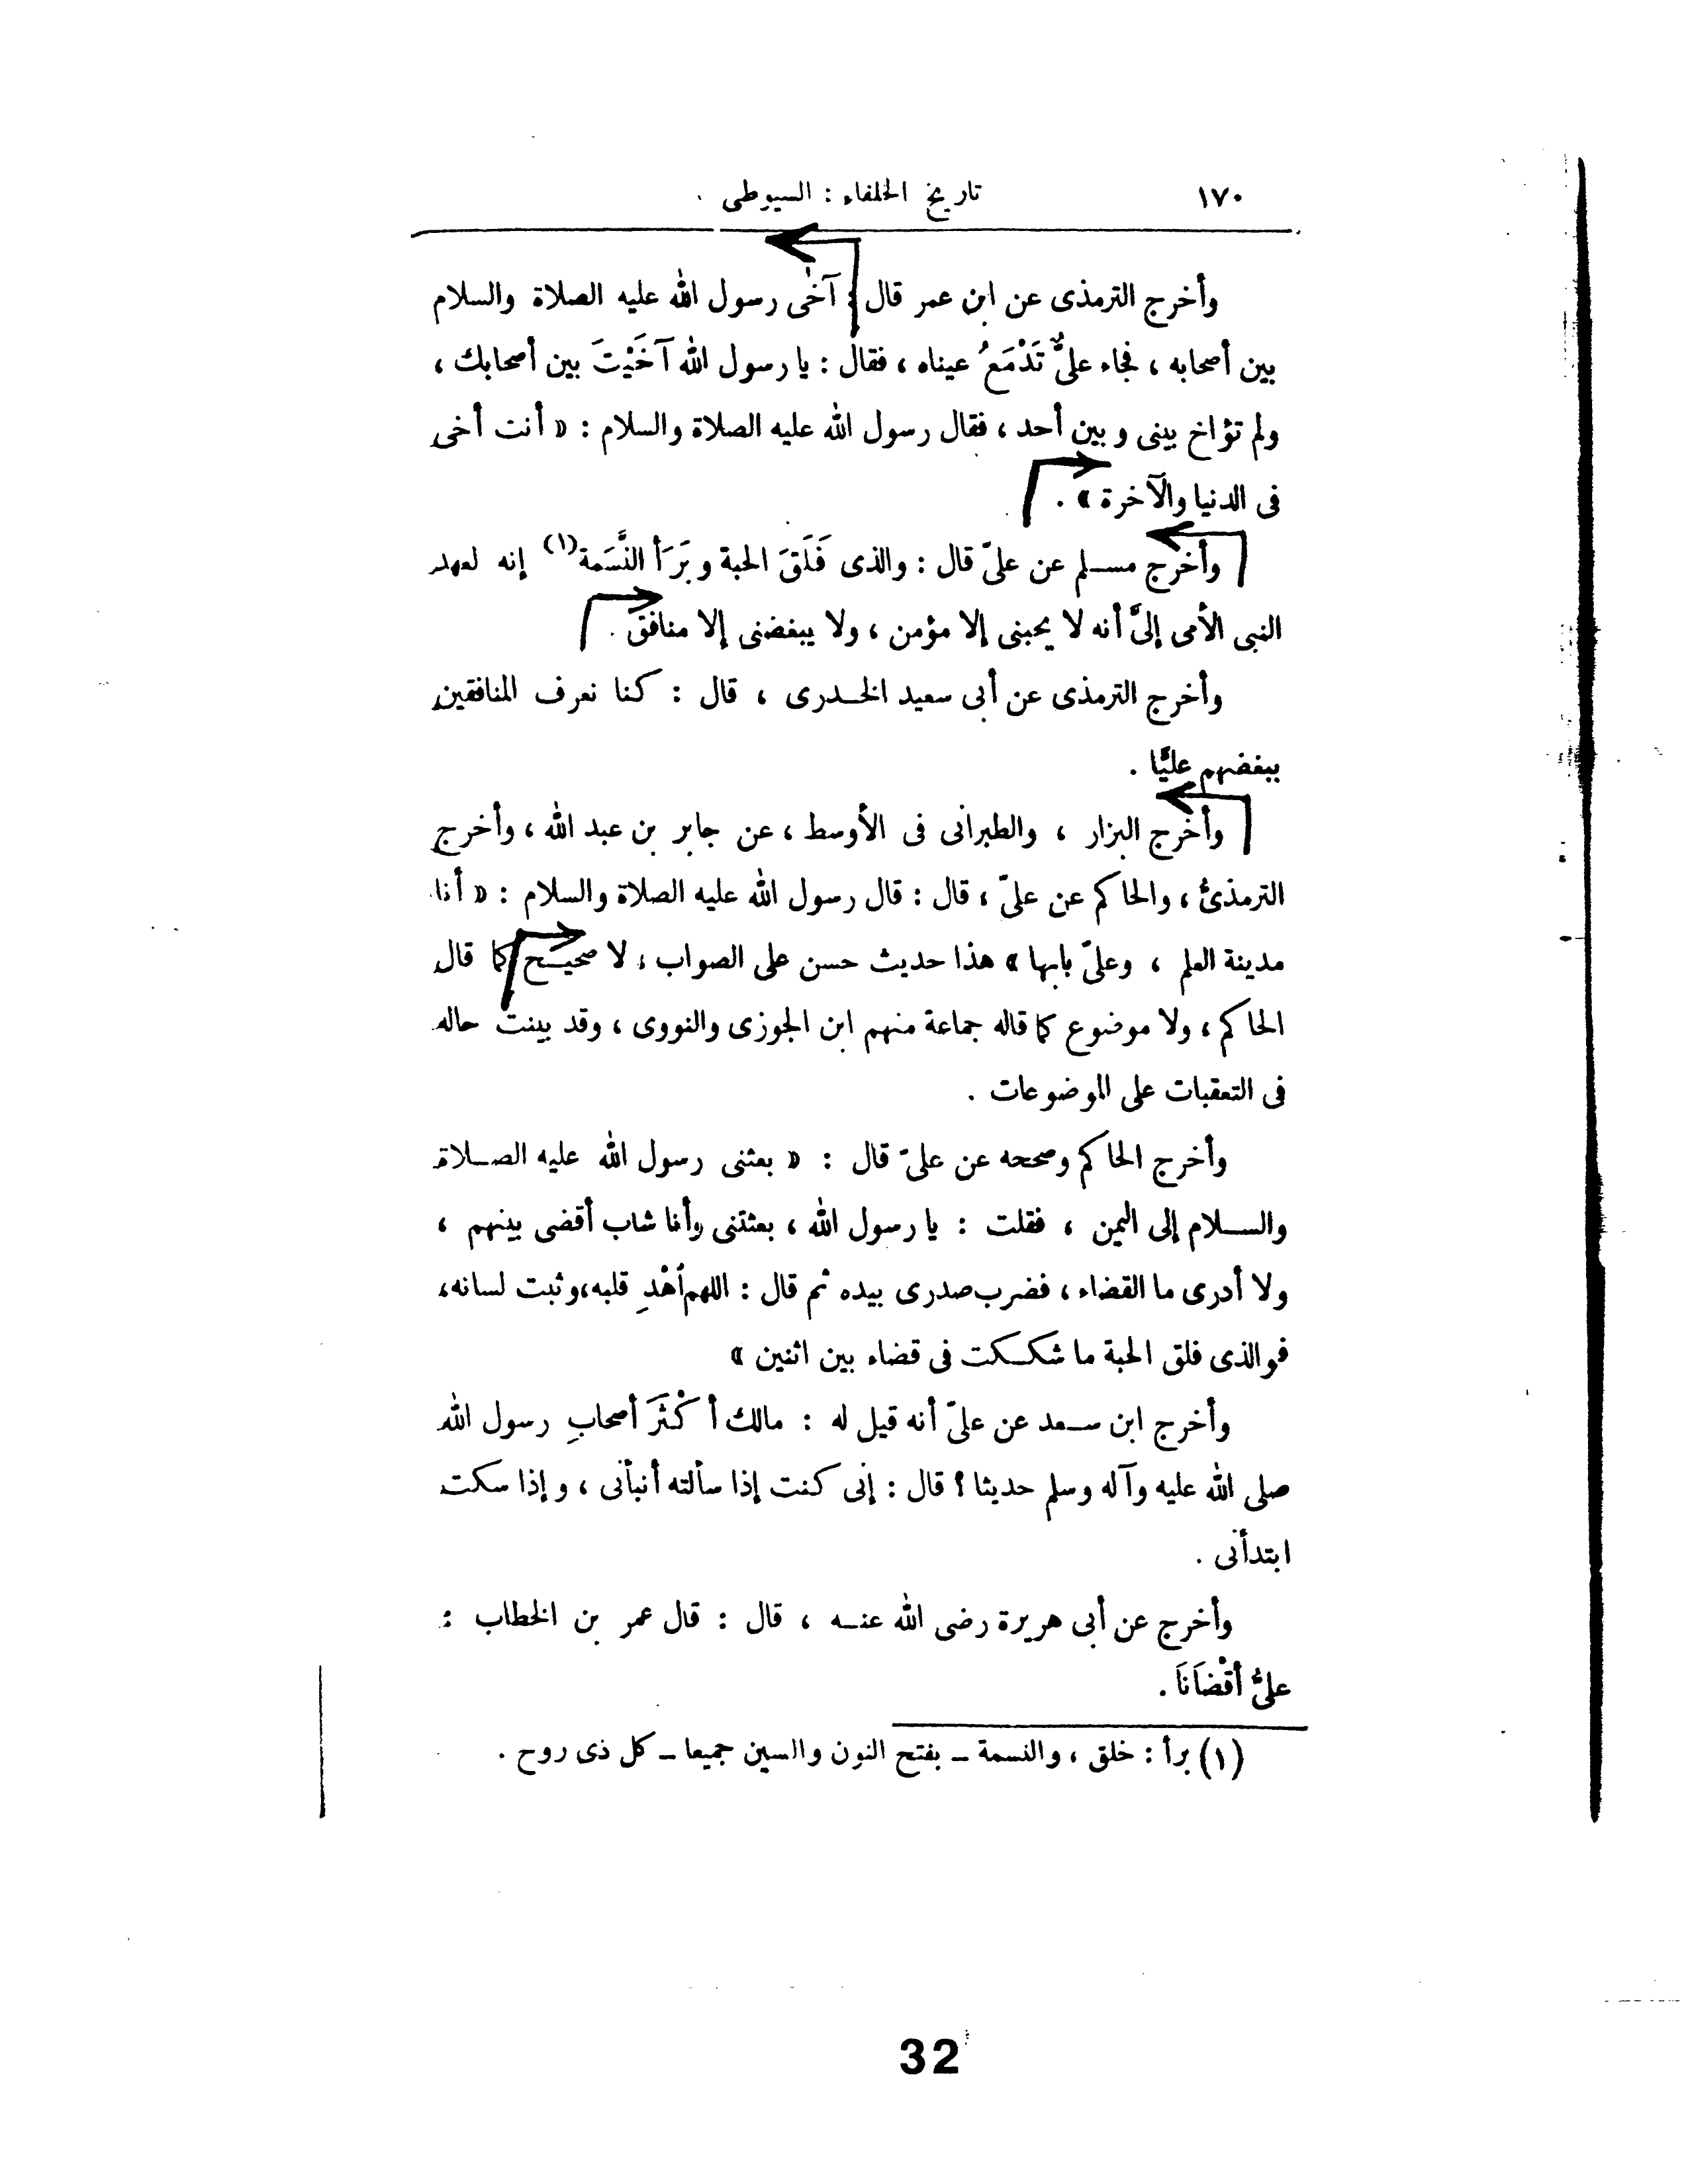 ١٧٠
تاريخ الخلفاء : السيوطى
وأخرج الترمذى عن ابن عمر قال : آخٰى رسول الله عليه الصلاة والسلام
بين أصحابه ، فجاء علىٌّ تَدْمَعُ عيناه ، فقال : يا رسول الله آخَيْتَ بين أصحابك ،
ولم تؤاخ بينى وبين أحد ، فقال رسول الله عليه الصلاة والسلام : « أنت أخى
فى الدنيا والآخرة » .
وأخرج مسلم عن علىّ قال : والذى فَلَقَ الحبة وبَرَأ النَّسَمة (١) إنه لعهد
النبى الأمى إلىَّ أنه لا يحبنى إلا مؤمن ، ولا يبغضنى إلا منافق .
وأخرج الترمذى عن أبى سعيد الخدرى ، قال : كنا نعرف المنافقين
ببغضهم عليًّا .
وأخرج البزار ، والطبرانى فى الأوسط ، عن جابر بن عبد الله ، وأخرج
الترمذىُّ ، والحاكم عن علىّ ، قال : قال رسول الله عليه الصلاة والسلام : « أنا
مدينة العلم ، وعلىّ بابها » هذا حديث حسن على الصواب ، لا صحيح كما قال
الحاكم ، ولا موضوع كما قاله جماعة منهم ابن الجوزى والنووى ، وقد بينت حاله
فى التعقبات على الموضوعات .
وأخرج الحاكم وصححه عن علىّ قال : « بعثنى رسول الله عليه الصلاة
والسلام إلى اليمن ، فقلت : يا رسول الله ، بعثتنى وأنا شاب أقضى بينهم ،
ولا أدرى ما القضاء ، فضرب صدرى بيده ثم قال : اللهم أهْدِ قلبه ، وثبت لسانه ،
فوالذى فلق الحبة ما شككت فى قضاء بين اثنين »
وأخرج ابن سعد عن علىّ أنه قيل له : مالك أكْثَرَ أصحابِ رسول الله
صلى الله عليه وآله وسلم حديثا ؟ قال : إنى كنت إذا سألته أنبأنى ، وإذا سكت
ابتدأنى .
وأخرج عن أبى هريرة رضى الله عنه ، قال : قال عمر بن الخطاب :
علىُّ أقْضَانَا .
(١) برأ : خلق ، والنسمة – بفتح النون والسين جميعا – كل ذى روح .
32